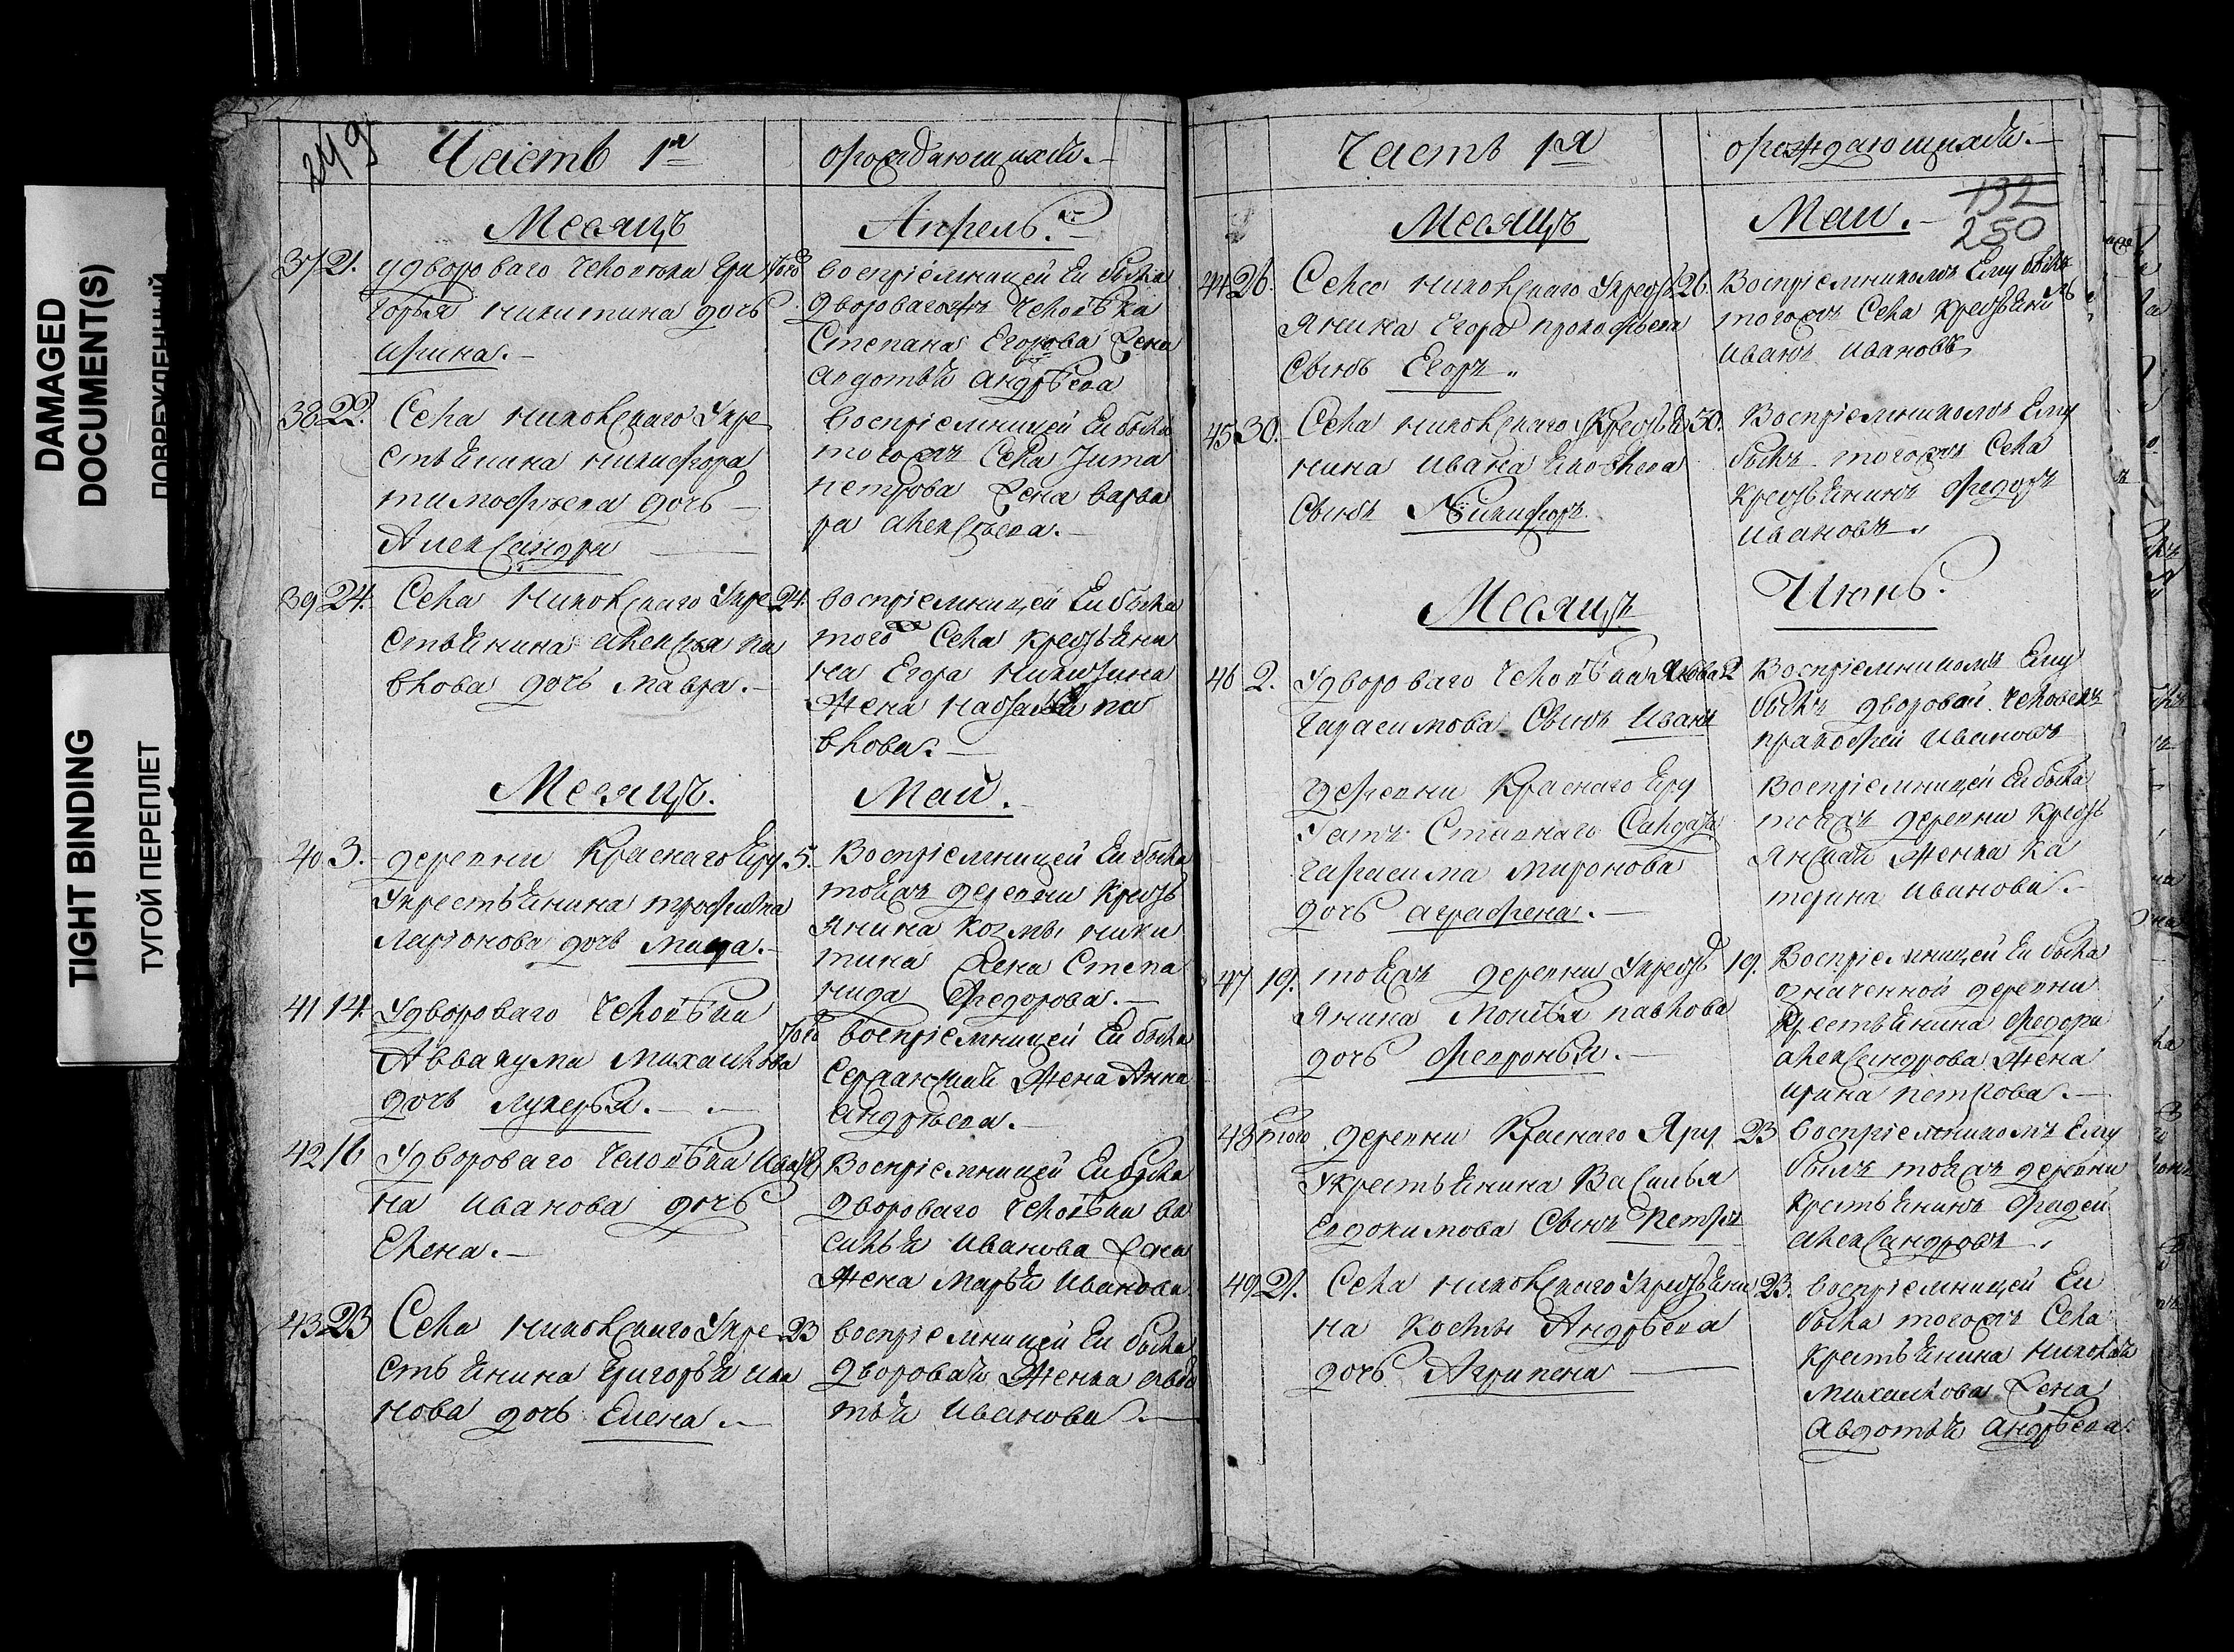 DAMAGED
DOCUMENT(S)
ПОВРЕЖДЕННЫЙ
TIGHT BINDING
ТУГОЙ ПЕРЕПЛЕТ
249
Часть 1я
ораждающихся.
Месяцъ
Апрель.
37 21. удвороваго человека Гри
горья никитина дочь
ирина.
того воспріемницей Ей была
двороваго человѣка
Степана Егорова жена
авдотья андрѣева
38 22. Села никольскаго укре
стьянина никифора
тимофѣева дочь
Александра
воспріемницей Ей была
тогожъ Села
петрова жена варва
ра алексѣева.
39 24. Села никольскаго укре
стьянина алексѣя па
влова дочь мавра.
24. воспріемницей Ей была
тогожъ Села крестьяни
на Егора никитина
жена настасья па
влова.
Месяцъ.
Маи.
40 3. деревни Краснаго Яру
укрестьянина трофима
ларіонова дочь
5. Воспріемницей Ей была
тояжъ деревни кресть
янина козмы ники
тина жена Степа
нида федорова.
41 14. удвороваго человѣка
Аввакума михайлова
дочь лукерья.
того воспріемницей Ей была
жена Анна
андрѣева.
42 16 удвороваго человѣка ива
на иванова дочь
Елена.
Воспріемницей Ей была
двороваго человѣка ва
силья иванова
жена марья иванова
43 23 Села никольскаго укре
стьянина григорья ива
нова дочь Елена.
23 воспріемницей Ей была
дворовая женка авдо
тья иванова
Часть 1я
ораждающихся.
132
250
Месяцъ
Маи.
44 26. Села никольскаго укресть
янина Егора прокофьева
Сынъ Егоръ
26. Воспріемникомъ Ему былъ
тогожъ Села крестьянинъ
иванъ ивановъ
45 30. Села никольскаго укрестья
нина ивана
Сынъ Никифоръ
30. Воспріемникомъ Ему
былъ тогожъ Села
крестьянинъ федоръ
ивановъ
Месяцъ
Июнь.
46 2. удвороваго человѣка Якова
гарасимова Сынъ иванъ
2 Воспріемникомъ Ему
былъ дворовай человекъ
пракофей ивановъ
деревни Краснаго Яру
гарасима миронова
дочь аграфена.
воспріемницей Ей была
тояжъ деревни кресть
янская женка ка
терина иванова.
47 19. тояжъ деревни укресть
янина моисѣя павлова
дочь февронья.
19. Воспріемницей Ей была
означенной деревни
крестьянина федора
александрова жена
ирина петрова.
48 того деревни Краснаго Яру
укрестьянина Василья
Евдокимова Сынъ петръ
23 воспріемникомъ Ему
былъ тояжъ деревни
крестьянинъ фадей
александровъ
49 21. Села никольскаго укрестьяни
на Андрѣева
дочь Агрипена
23. воспріемницей Ей
была тогожъ Села
крестьянина николая
михайлова жена
авдотья андрѣева.